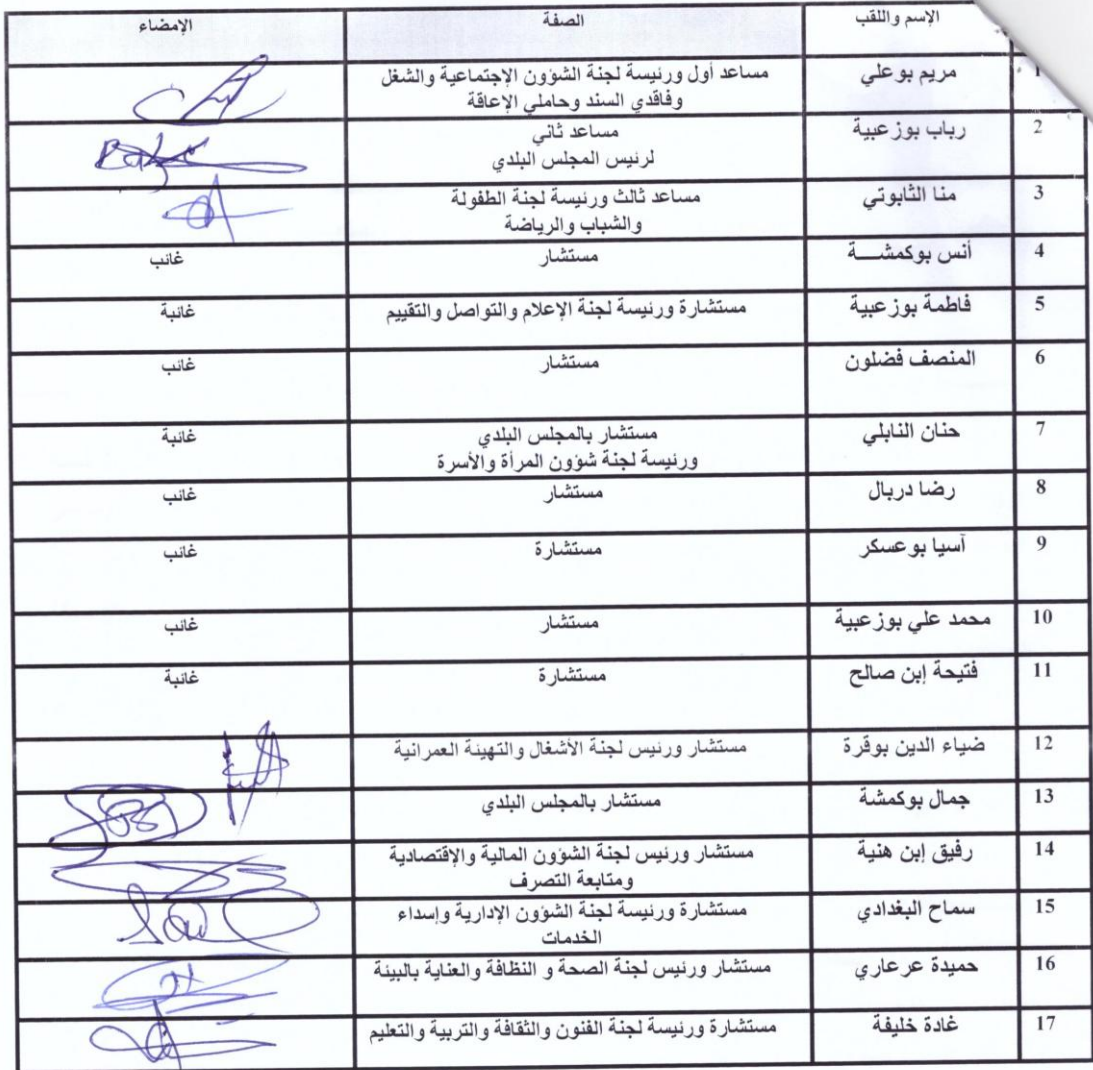 الإسم واللقب الصفة الإمضاء
1 مريم بوعلي مساعد أول ورئيسة لجنة الشؤون الإجتماعية والشغل
وفاقدي السند وحاملي الإعاقة
2 رباب بوزعبية مساعد ثاني
لرئيس المجلس البلدي
3 منا الثابوتي مساعد ثالث ورئيسة لجنة الطفولة
والشباب والرياضة
4 أنس بوكمشـــة مستشار غائب
5 فاطمة بوزعبية مستشارة ورئيسة لجنة الإعلام والتواصل والتقييم غائبة
6 المنصف فضلون مستشار غائب
7 حنان النابلي مستشار بالمجلس البلدي غائبة
ورئيسة لجنة شؤون المرأة والأسرة
8 رضا دربال مستشار غائب
9 آسيا بوعسكر مستشارة غائب
10 محمد علي بوزعبية مستشار غائب
11 فتيحة إبن صالح مستشارة غائبة
12 ضياء الدين بوقرة مستشار ورئيس لجنة الأشغال والتهيئة العمرانية
13 جمال بوكمشة مستشار بالمجلس البلدي
14 رفيق إبن هنية مستشار ورئيس لجنة الشؤون المالية والإقتصادية
ومتابعة التصرف
15 سماح البغدادي مستشارة ورئيسة لجنة الشؤون الإدارية وإسداء
الخدمات
16 حميدة عرعاري مستشار ورئيس لجنة الصحة و النظافة والعناية بالبيئة
17 غادة خليفة مستشارة ورئيسة لجنة الفنون والثقافة والتربية والتعليم